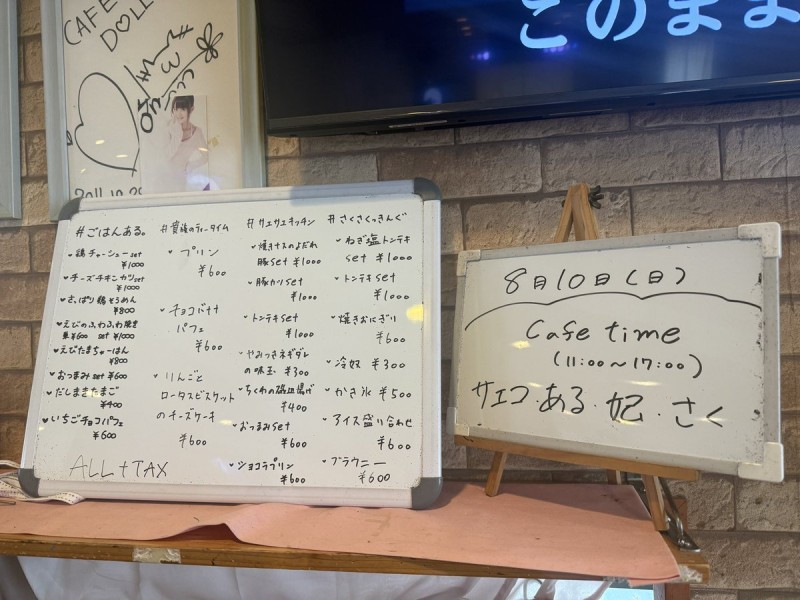 CAFE
DOLL
2011.10.29
このまま
#ごはんある。
・鶏チャーシューset
¥1000
・チーズチキンカツset
¥1000
・さっぱり鶏そうめん
¥800
・えびのふわふわ焼き
単¥600 set ¥1000
・えびたまちゃーはん
¥800
・おつまみset ¥600
・だしまきたまご
¥400
・いちごチョコパフェ
¥600
ALL+TAX
#貴族のティータイム
・プリン
¥600
・チョコバナナ
パフェ
¥600
・りんごと
ロータスビスケット
のチーズケーキ
¥600
#サエサエキッチン
・焼きナスのよだれ
豚set ¥1000
・豚カツset
¥1000
・トンテキset
¥1000
・やみつきネギダレ
の味玉 ¥300
・ちくわの磯辺揚げ
¥400
・おつまみset
¥600
・ショコラプリン
¥600
#さくさくっきんぐ
・ねぎ塩トンテキ
set ¥1000
・トンテキset
¥1000
・焼きおにぎり
¥600
・冷奴 ¥300
・かき氷 ¥500
・アイス盛り合わせ
¥600
・ブラウニー
¥600
8月10日(日)
Cafe time
(11:00~17:00)
サエコ・ある・妃・さく